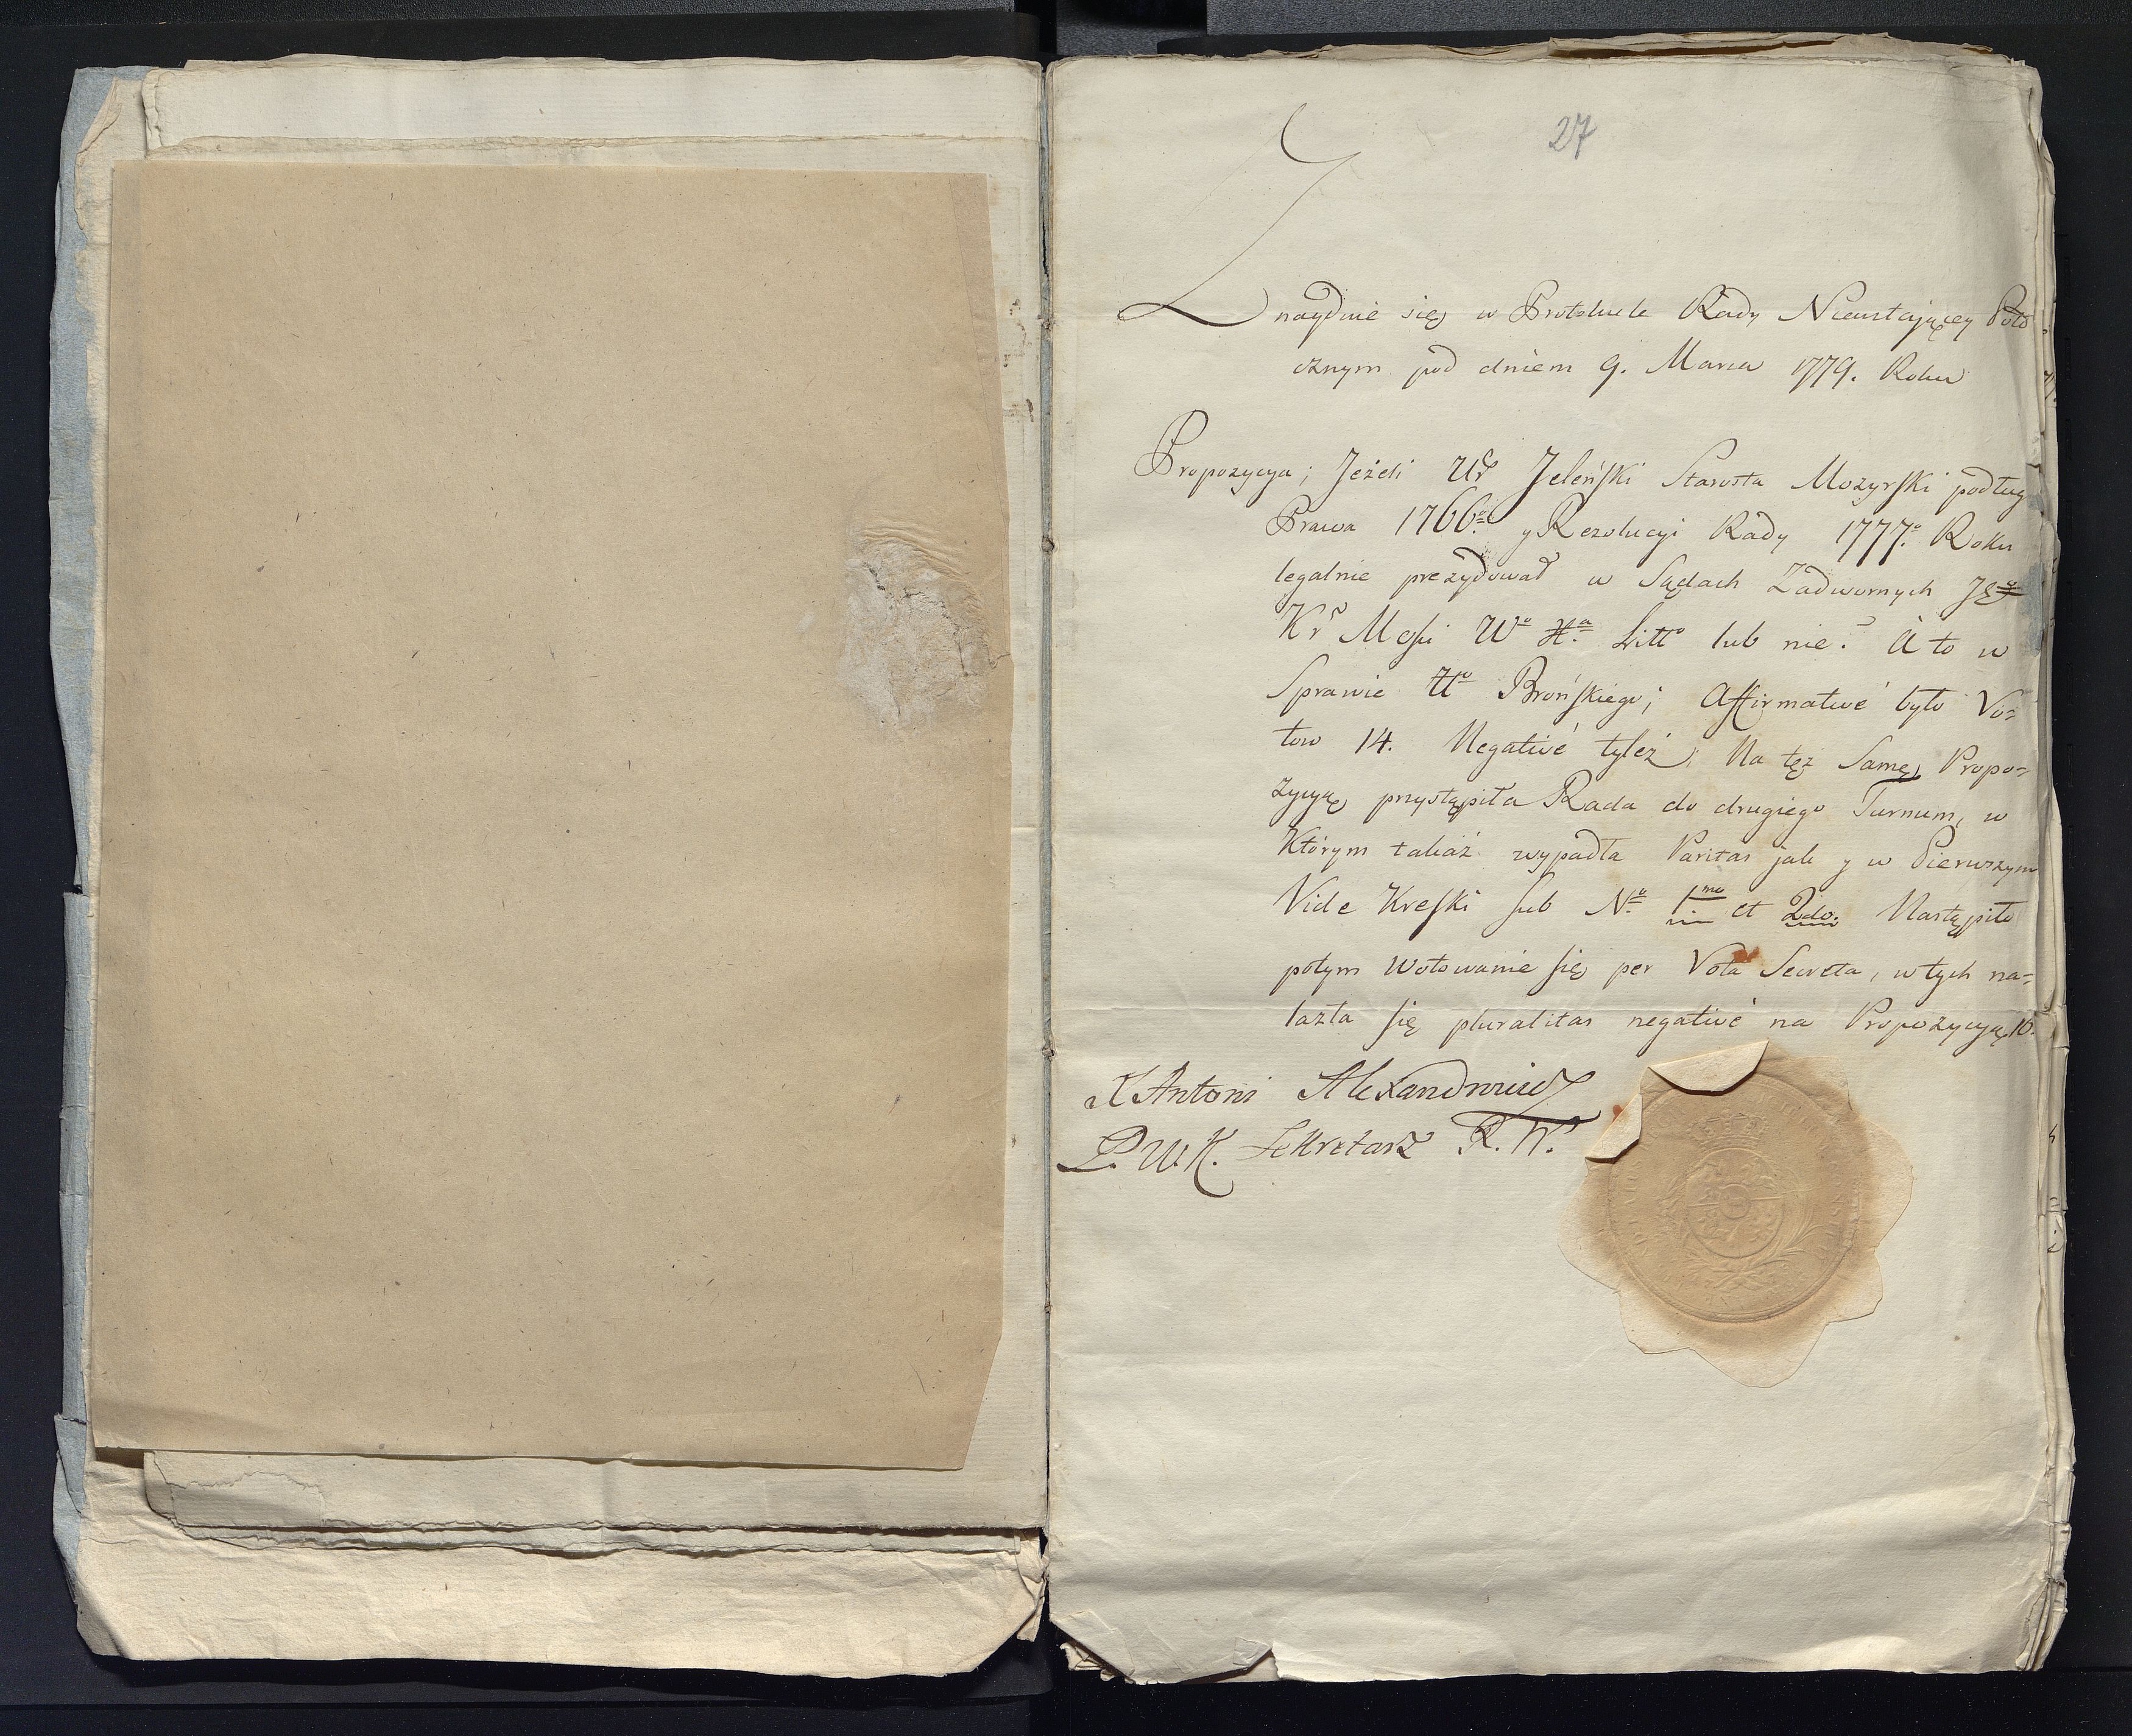 27
Znayduie się w Protokule Rady Nieustaiącey Poto
cznym pod dniem 9. Marca 1779. Roku
Propozycya; Jeżeli Ur Jeleńſki Starosta Mozyrſki podług
Prawa 1766º y Rezolucyi Rady 1777º Roku
legalnie prezydował w Sądach Zadwornych
Kr Mośi Wº Xª Littº lub nie? A to w
Sprawie Uº Brońſkiego; Affirmativé było Vo=
tow 14. Negativé tyleż; Na tęż Samę Propo=
zycyą przystąpiła Rada do drugiego Turnum, w
Którym takaż wypadła Paritas jak y w Pierwszym
Vide Kreſki ſub Nº 1mo et 2do. Nastąpiło
potym Wotowanie ſię per Vota Secreta, w tych na=
lazła ſię pluralitas negativé na Propozycyą 10.
X Antoni Alexandrowicz
P. W. K. Sekretarz R. N.